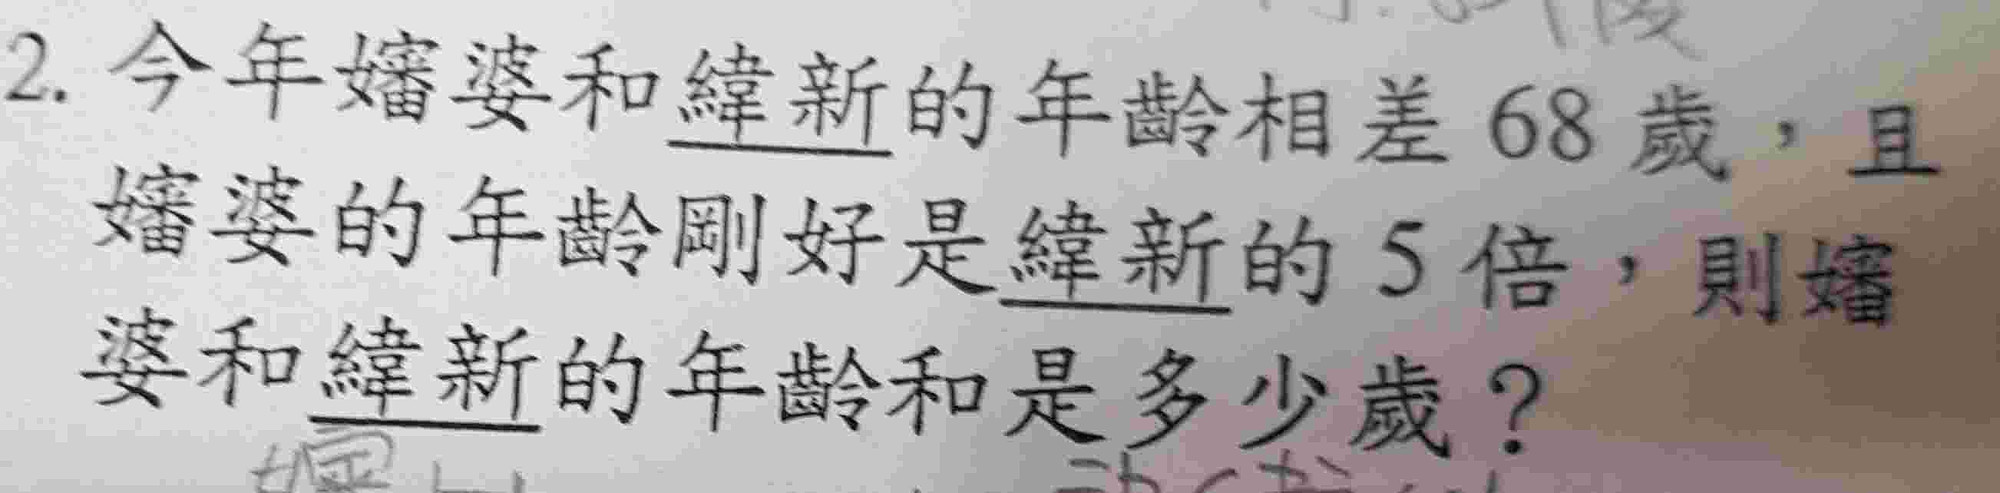 2. 今年嬸婆和緯新的年齡相差 68 歲，且
嬸婆的年齡剛好是緯新的 5 倍，則嬸
婆和緯新的年齡和是多少歲？